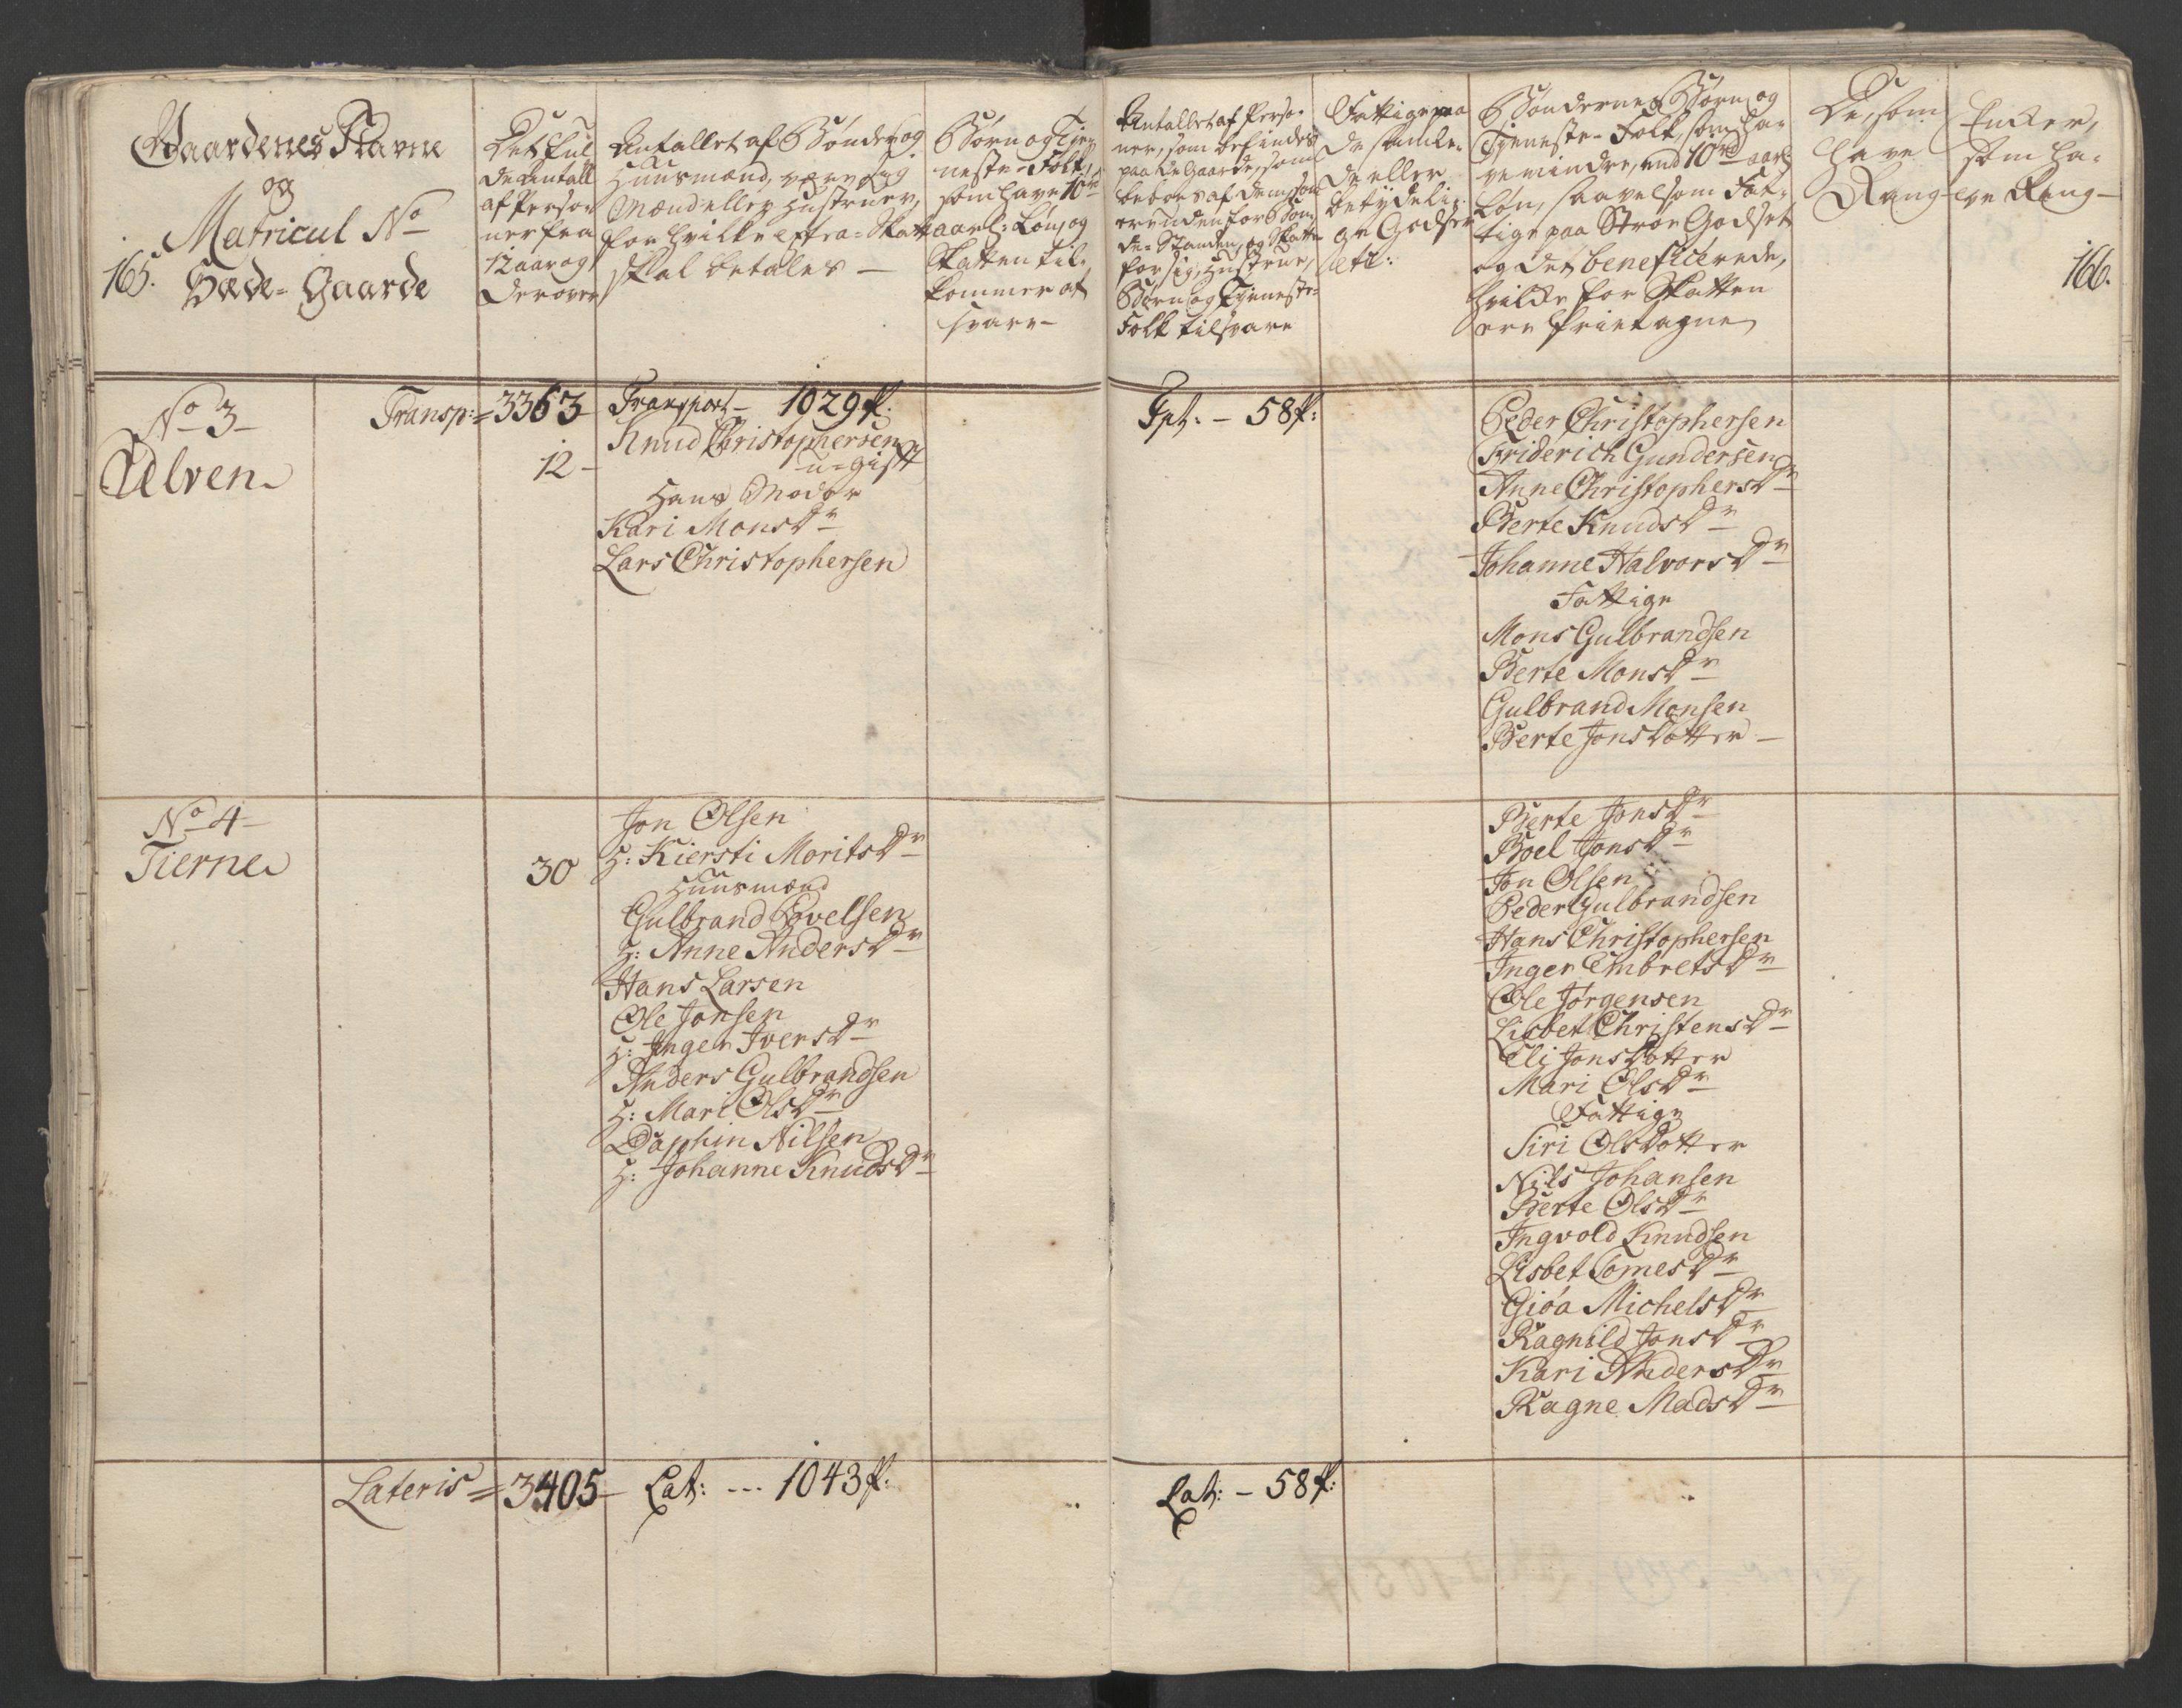 165.
Gaardenes Navne
og
Matricul No
Sæde-Gaarde
Det ful
de Antall
af Perso
ner fra
12 aar og
derover
Antallet af Bønder og
Huusmænd, være sig
Mænd eller Hustruer,
for hvilke extra-Skatt
skal betales —
Børn og Tie-
neste-Folk,
som have 10rd
aarl: Løn, og
Skatten til-
kommer at
svare —
Antallet af Perso-
ner, som befindes
paa de Gaarde, som
beboes af dem, som
ere uden for Bon-
de-Standen, og Skatte
for sig, Hustrue,
Børn og Tieneste-
Folk tilsvare
Fattige paa
de samle-
de eller
betydeli-
ge Godser
etc:
Bøndernes Børn og
Tieneste-Folk, som ha-
ve mindre, end 10rd aarl
Løn, saavelsom Fat-
tige paa Strøe Godset
og det beneficerede,
hvilke for Skatten
ere frietagne
De, som
have
Rang
Enker,
som ha-
ve Rang —
166.
No 3
Ædlven
Transp: = 3363
12 —
Transport — 1029 ss:
Knud Christophersen
u-gift
Hans Moder
Kari MonsDr
Lars Christophersen
Tpt: — 58 ss:
Peder Christophersen
Friderich Gundersen
Anne ChristophersDr
Berte KnudsDr
Johanne HalvorsDr
Fattige
Mons Gulbrandsen
Berte MonsDr
Gulbrand Monsen
Berte Jonsdotter —
No 4
Tierne
30
Jon Olsen
H: Kiersti MoritsDr
Huusmænd
Gulbrand Povelsen
H: Anne AndersDr
Hans Larsen
Ole Jonsen
H: Inger IversDr
Anders Gulbrandsen
H: Mari OlsDr
Daphin Nilsen
H: Johanne KnudsDr
Berte JonsDr
Boel JonsDr
Jon Olsen
Peder Gulbrandsen
Hans Christophersen
Inger EmbretsDr
Ole Jørgensen
Lisbet ChristensDr
Eli Jonsdotter
Mari OlsDr
Fattige
Siri Olsdotter
Nils Johansen
Berte OlsDr
Ingvold Knudsen
Lisbet TomesDr
Giøa MichelsDr
Ragnild JonsDr
Kari AndersDr
Ragne MadsDr
Lateris = 3405 —
Lat: --- 1043 ss:
Lat: — 58 ss: